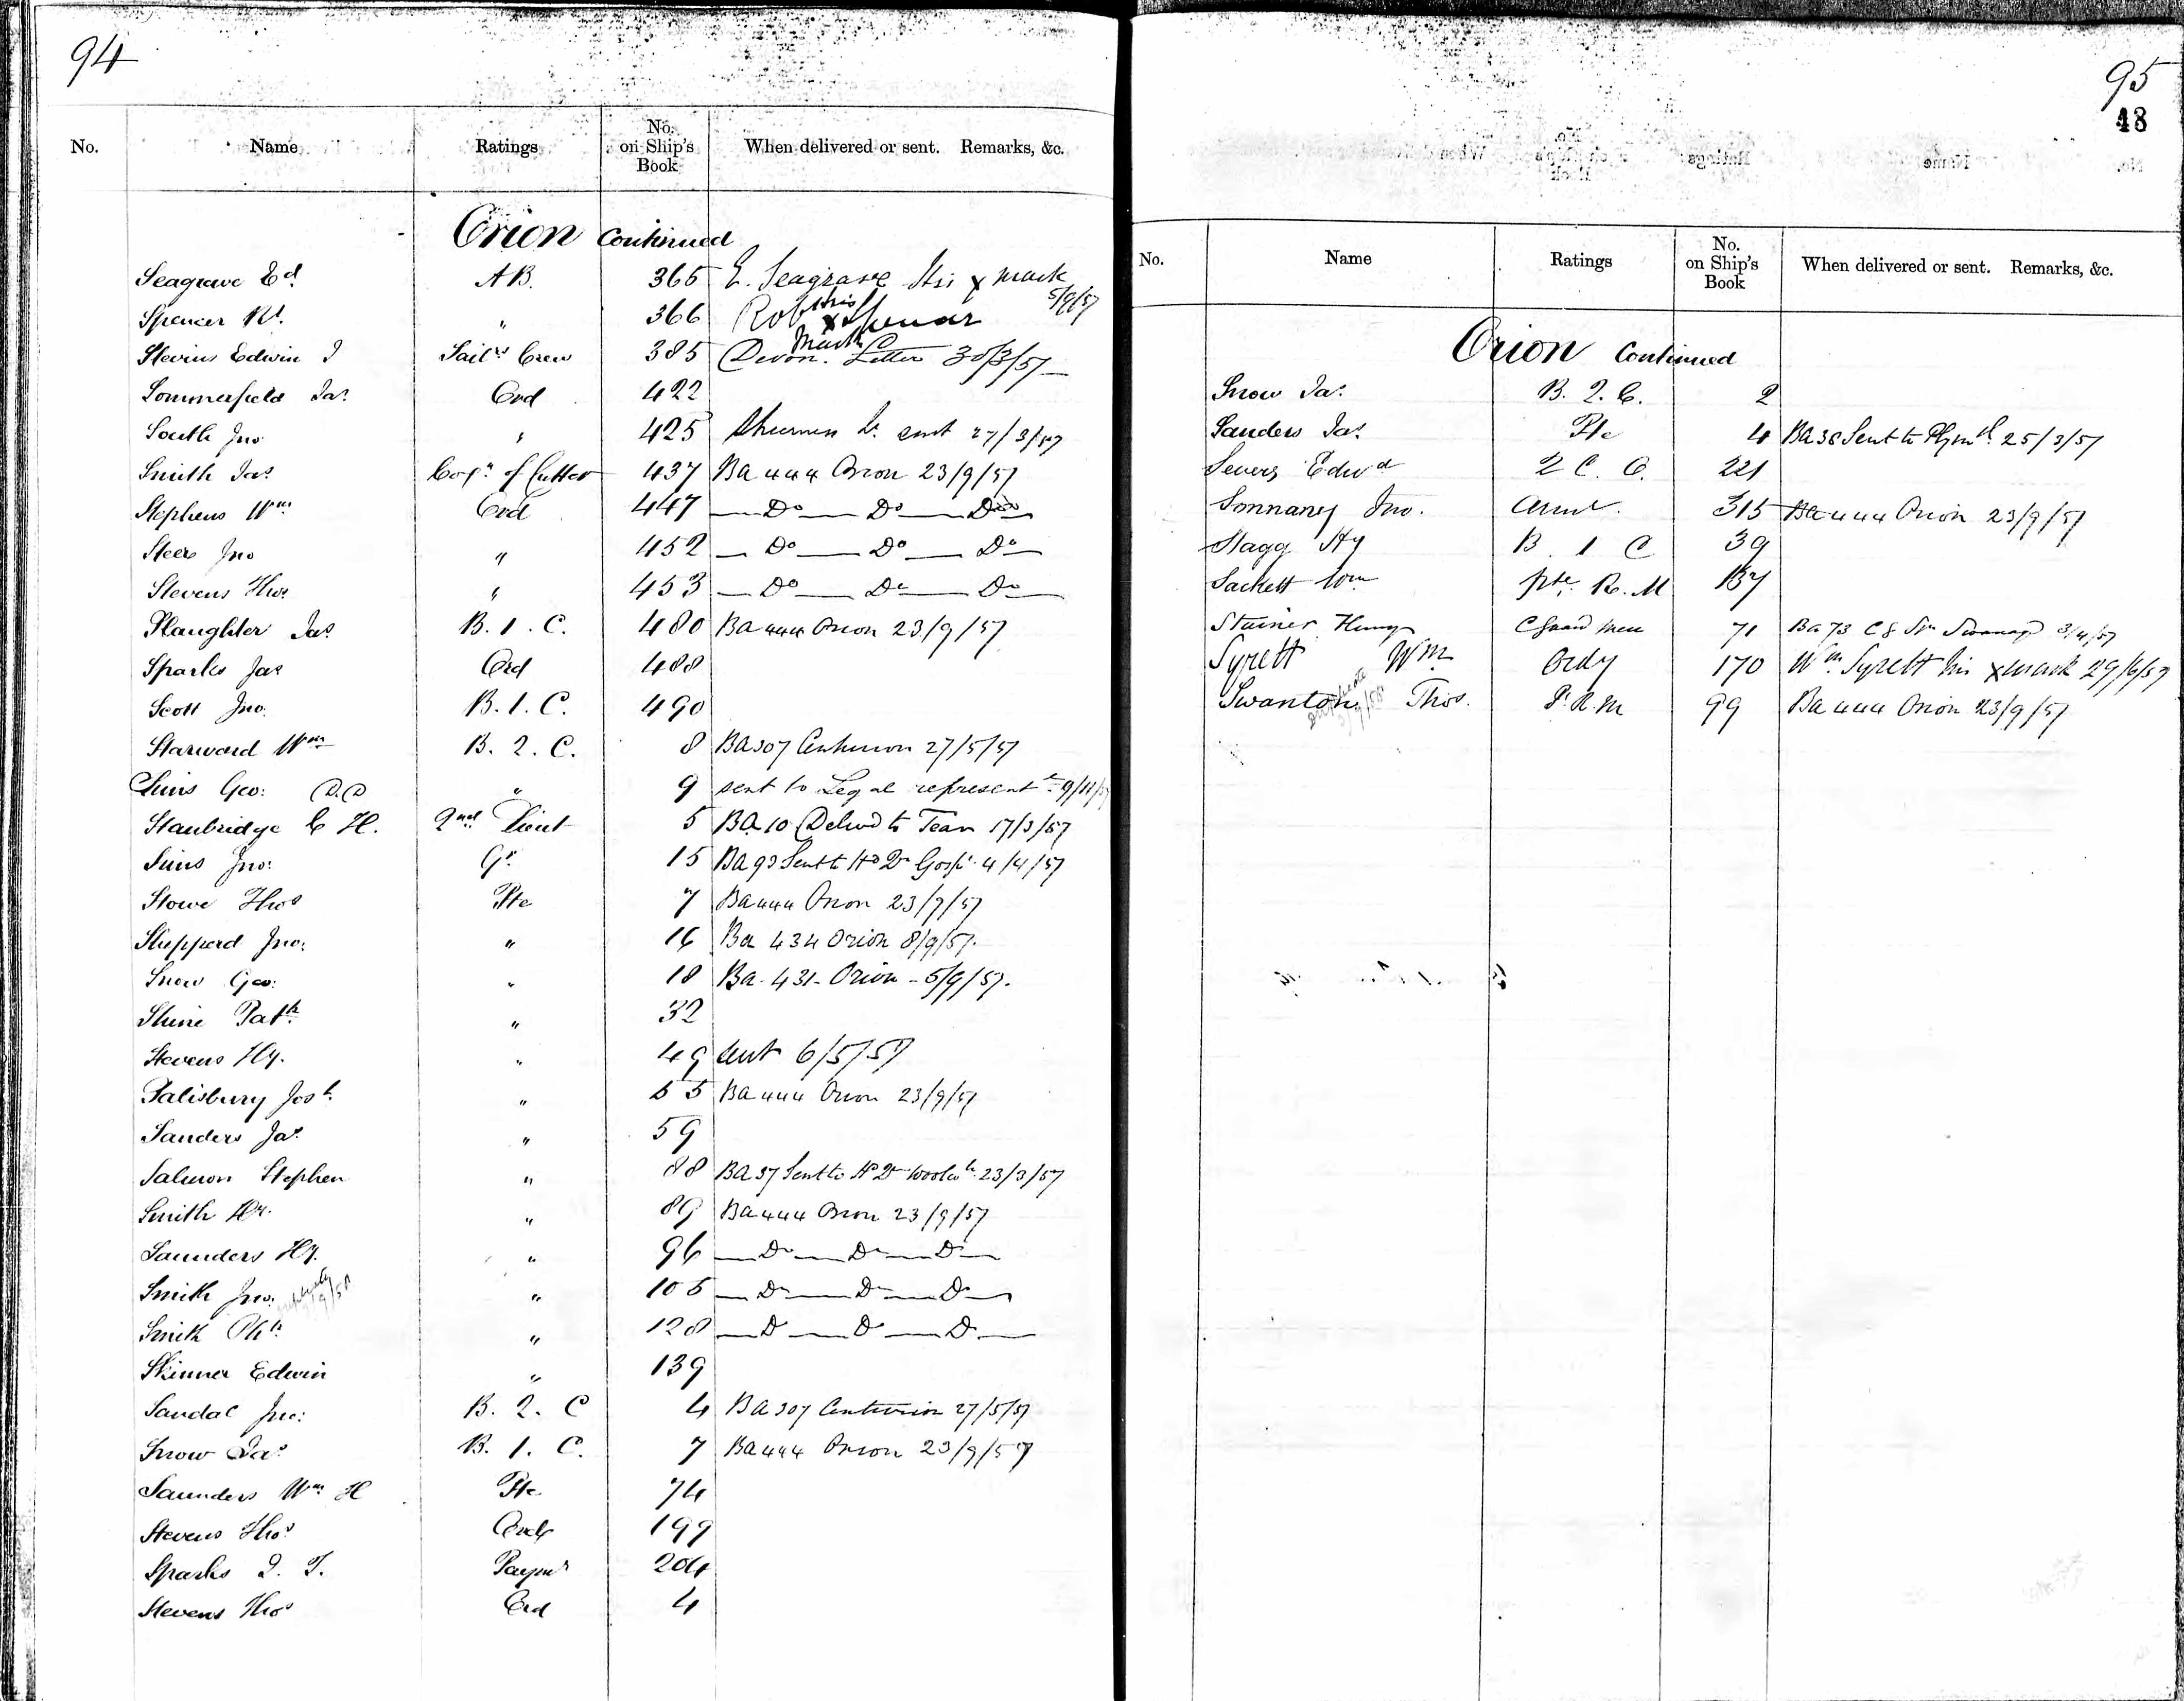 94
No. Name Ratings No. on Ship's Book When delivered or sent. Remarks, &c.
Orion Continued
Seagrave Ed. AB. 365 E. Seagrave His x mark 5/9/57
Spencer Rt. " 366 Rob his x mark
Stevins Edwin J Sail.rs Crew 385 Devon. Letter 30/3/57
Sommerfield Jas. Ord 422
South Jno " 425 sent 27/3/57
Smith Jas. Capn. of Cutter 437 Ba 444 Orion 23/9/57
Stephens Wm Ord 447 — Do — Do — Do —
Steer Jno " 452 — Do — Do — Do —
Stevens Thos. " 453 — Do — Do — Do —
Slaughter Jas. B. 1. C. 480 Ba 444 Orion 23/9/57
Sparks Jas Ord 488
Scott Jno. B. 1. C. 490
Starward Wm B. 2. C. 8 Ba 307 Centurion 27/5/57
Sims Geo: D.D " 9 sent to Legal represent
Stanbridge C H. 2nd Lieut 5 Ba 10 Delivd to 17/3/57
Sims Jno: Gr. 15 Ba 93 Sent to Hd Qr Gospt. 4/4/57
Stowe Thos Pte 7 Ba 444 Orion 23/9/57
Shepperd Jno: " 16 Ba 434 Orion 8/9/57.
Snow Geo: " 18 Ba. 431 - Orion - 5/9/57.
Shine Patk. " 32
Stevens Hy. " 49 sent 6/5/57
Salisbury Josh. " 55 Ba 444 Orion 23/9/57
Sanders Jas. " 59
Salmon Stephen " 88 Ba 37 Sent to Hd Qr Woolwh. 23/3/57
Smith Hy. " 89 Ba 444 Orion 23/9/57
Saunders Hy. " 96 — Do — Do — Do —
Smith Jno. " 105 — Do — Do — Do —
Smith " 128 — Do — Do — Do —
Skinner Edwin " 139
Sandal Jno: B. 2. C 4 Ba 307 Centurion 27/5/57
Snow Jas. B. 1. C. 7 Ba 444 Orion 23/9/57
Saunders Wm H Pte 74
Stevens Thos. Ord 199
Sparks J. T. Paymr 204
Stevens Thos Ord 4
95
48
No. Name Ratings No. on Ship's Book When delivered or sent. Remarks, &c.
Orion Continued
Snow Jas. B. 2. C. 2
Sanders Jas. Pte 4 Ba 38 Sent to Plymth. 25/3/57
Severs Edwd 2 C. O. 221
Sonnaney Jno. 315 Ba 444 Orion 23/9/57
Stagg Hy B. 1 C 39
Sackett Wm pte. R. M 137
Stainer Henry C Guard Men 71 Ba 73 C G Stn Swanage 3/4/57
Syrett Wm. Ordy 170 Wm Syrett his x mark 29/6/57
Swanton Thos. P. R. M 99 Ba 444 Orion 23/9/57